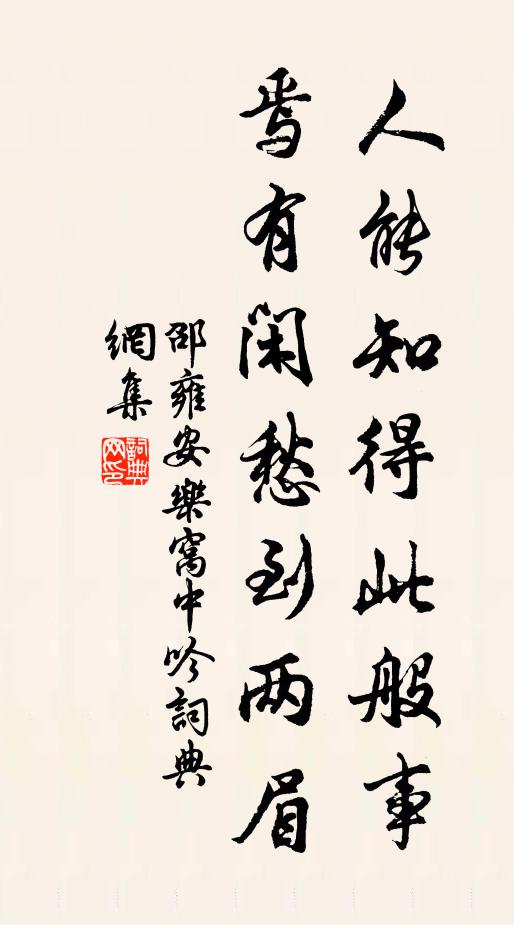 人能知得此般事
焉有闲愁到两眉
邵雍安樂窩中吟詞典
網集
詞典
网印